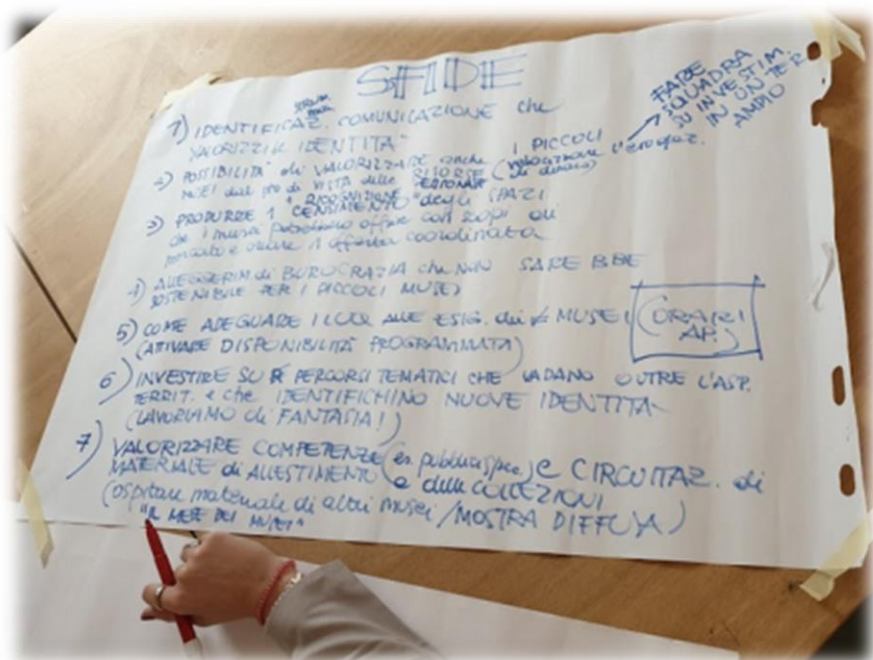 SFIDE
1) IDENTIFICAZ. COMUNICAZIONE che
VALORIZZI IDENTITÀ
2) POSSIBILITÀ di VALORIZZARE anche I PICCOLI
MUSEI dal pto di VISTA delle RISORSE
FARE
SQUADRA
SU INVESTIM.
IN UN TER
AMPIO
3) PRODURRE 1 "CENSIMENTO" degli SPAZI
RICOGNIZIONE
che i musei potrebbero offrire con scopi di
mercato e creare 1 offerta coordinata
4) ALLEGGERIM di BUROCRAZIA che NON SAREBBE
SOSTENIBILE PER I PICCOLI MUSEI
5) COME ADEGUARE I LUOR ALLE ESIG. dei ≠ MUSEI (ORARI
AP.)
(ATTIVARE DISPONIBILITÀ PROGRAMMATA)
6) INVESTIRE SU PERCORSI TEMATICI CHE VADANO OLTRE L'ASP.
TERRIT. e che IDENTIFICHINO NUOVE IDENTITÀ
(LAVORIAMO di FANTASIA!)
7) VALORIZZARE COMPETENZE (es. pubbliche spec.) e CIRCUITAZ. di
MATERIALE di ALLESTIMENTO e delle COLLEZIONI
(ospitare materiale di altri musei / MOSTRA DIFFUSA)
"IL MESE DEI MUSEI"